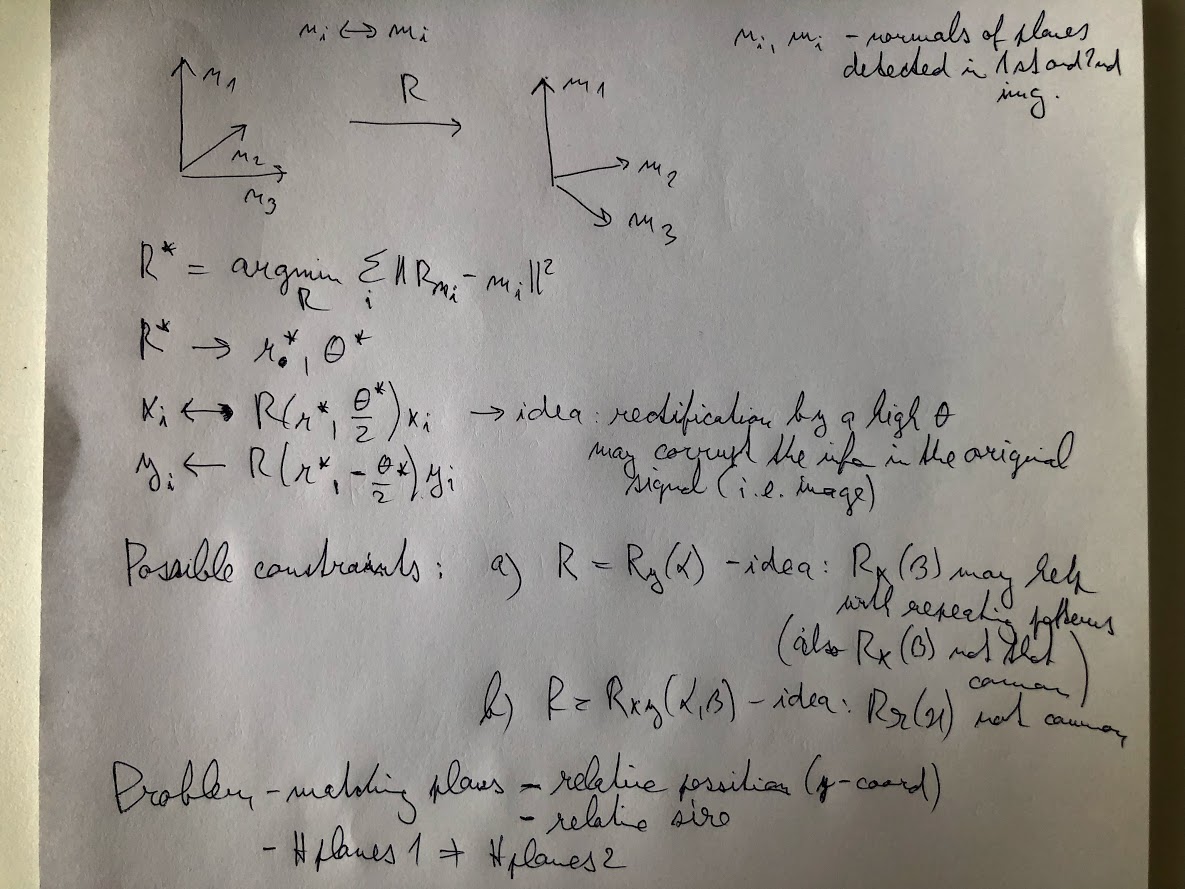 n_i ↔ m_i
n_i, m_i - normals of planes
detected in 1st and 2nd
img.
n_1
n_2
n_3
R
m_1
m_2
m_3
R* = argmin_R Σ_i ||R n_i - m_i||²
R* → r*, θ*
x_i ↔ R(r*, θ*/2) x_i → idea: rectification by a high θ
may corrupt the info in the original
signal (i.e. image)
y_i ← R(r*, -θ*/2) y_i
Possible constraints: a) R = R_y(α) - idea: R_x(β) may help
with repeating patterns
(also R_x(β) not that
common)
b) R = R_xy(α,β) - idea: R_z(γ) not common
Problem - matching planes - relative possition (y-coord)
- relative size
- # planes 1 ≠ # planes 2